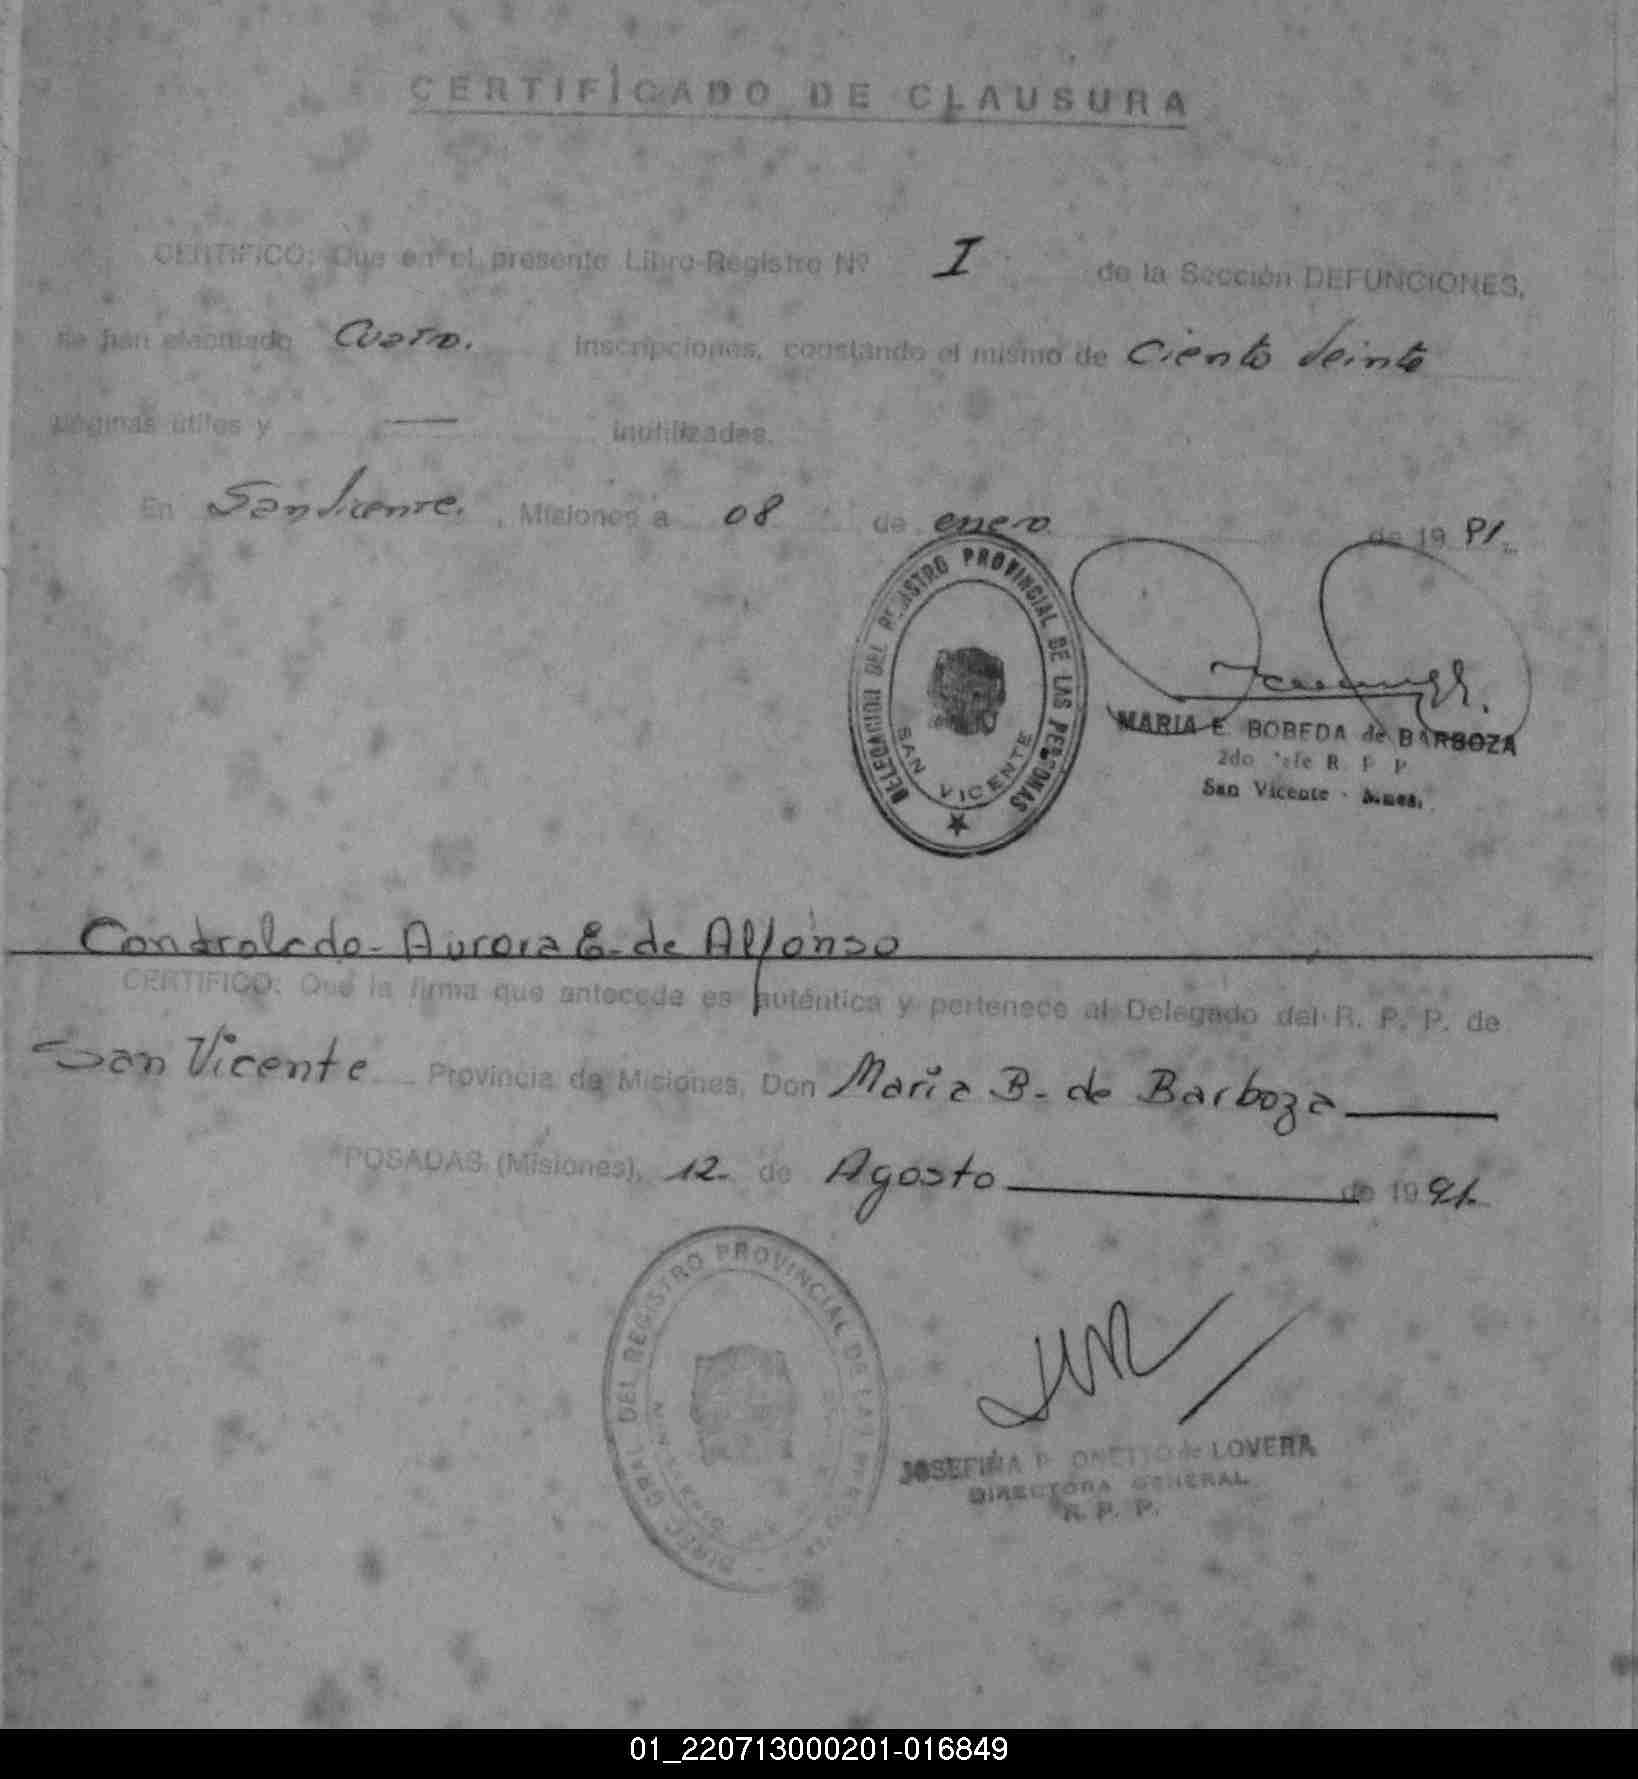 CERTIFICADO DE CLAUSURA
CERTIFICO: Que en el presente Libro Registro Nº I de la Sección DEFUNCIONES,
se han efectuado Cuatro. inscripciones, constando el mismo de Ciento Veinte
páginas útiles y — inutilizadas.
En San Vicente. , Misiones a 08 de enero de 19 91.
DELEGACION DEL REGISTRO PROVINCIAL DE LAS PERSONAS
SAN VICENTE
MARIA E. BOBEDA de BARBOZA
2do Jefe R. P. P.
San Vicente - Mnes.
Controlado - Aurora E. de Alfonso
CERTIFICO: Que la firma que antecede es auténtica y pertenece al Delegado del R. P. P. de
San Vicente Provincia de Misiones, Don Maria B. de Barboza
POSADAS (Misiones), 12 de Agosto de 19 91.
DIREC. GRAL. DEL REGISTRO PROVINCIAL DE LAS PERSONAS
JOSEFINA P. ONETTO de LOVERA
DIRECTORA GENERAL
R. P. P.
01_220713000201-016849